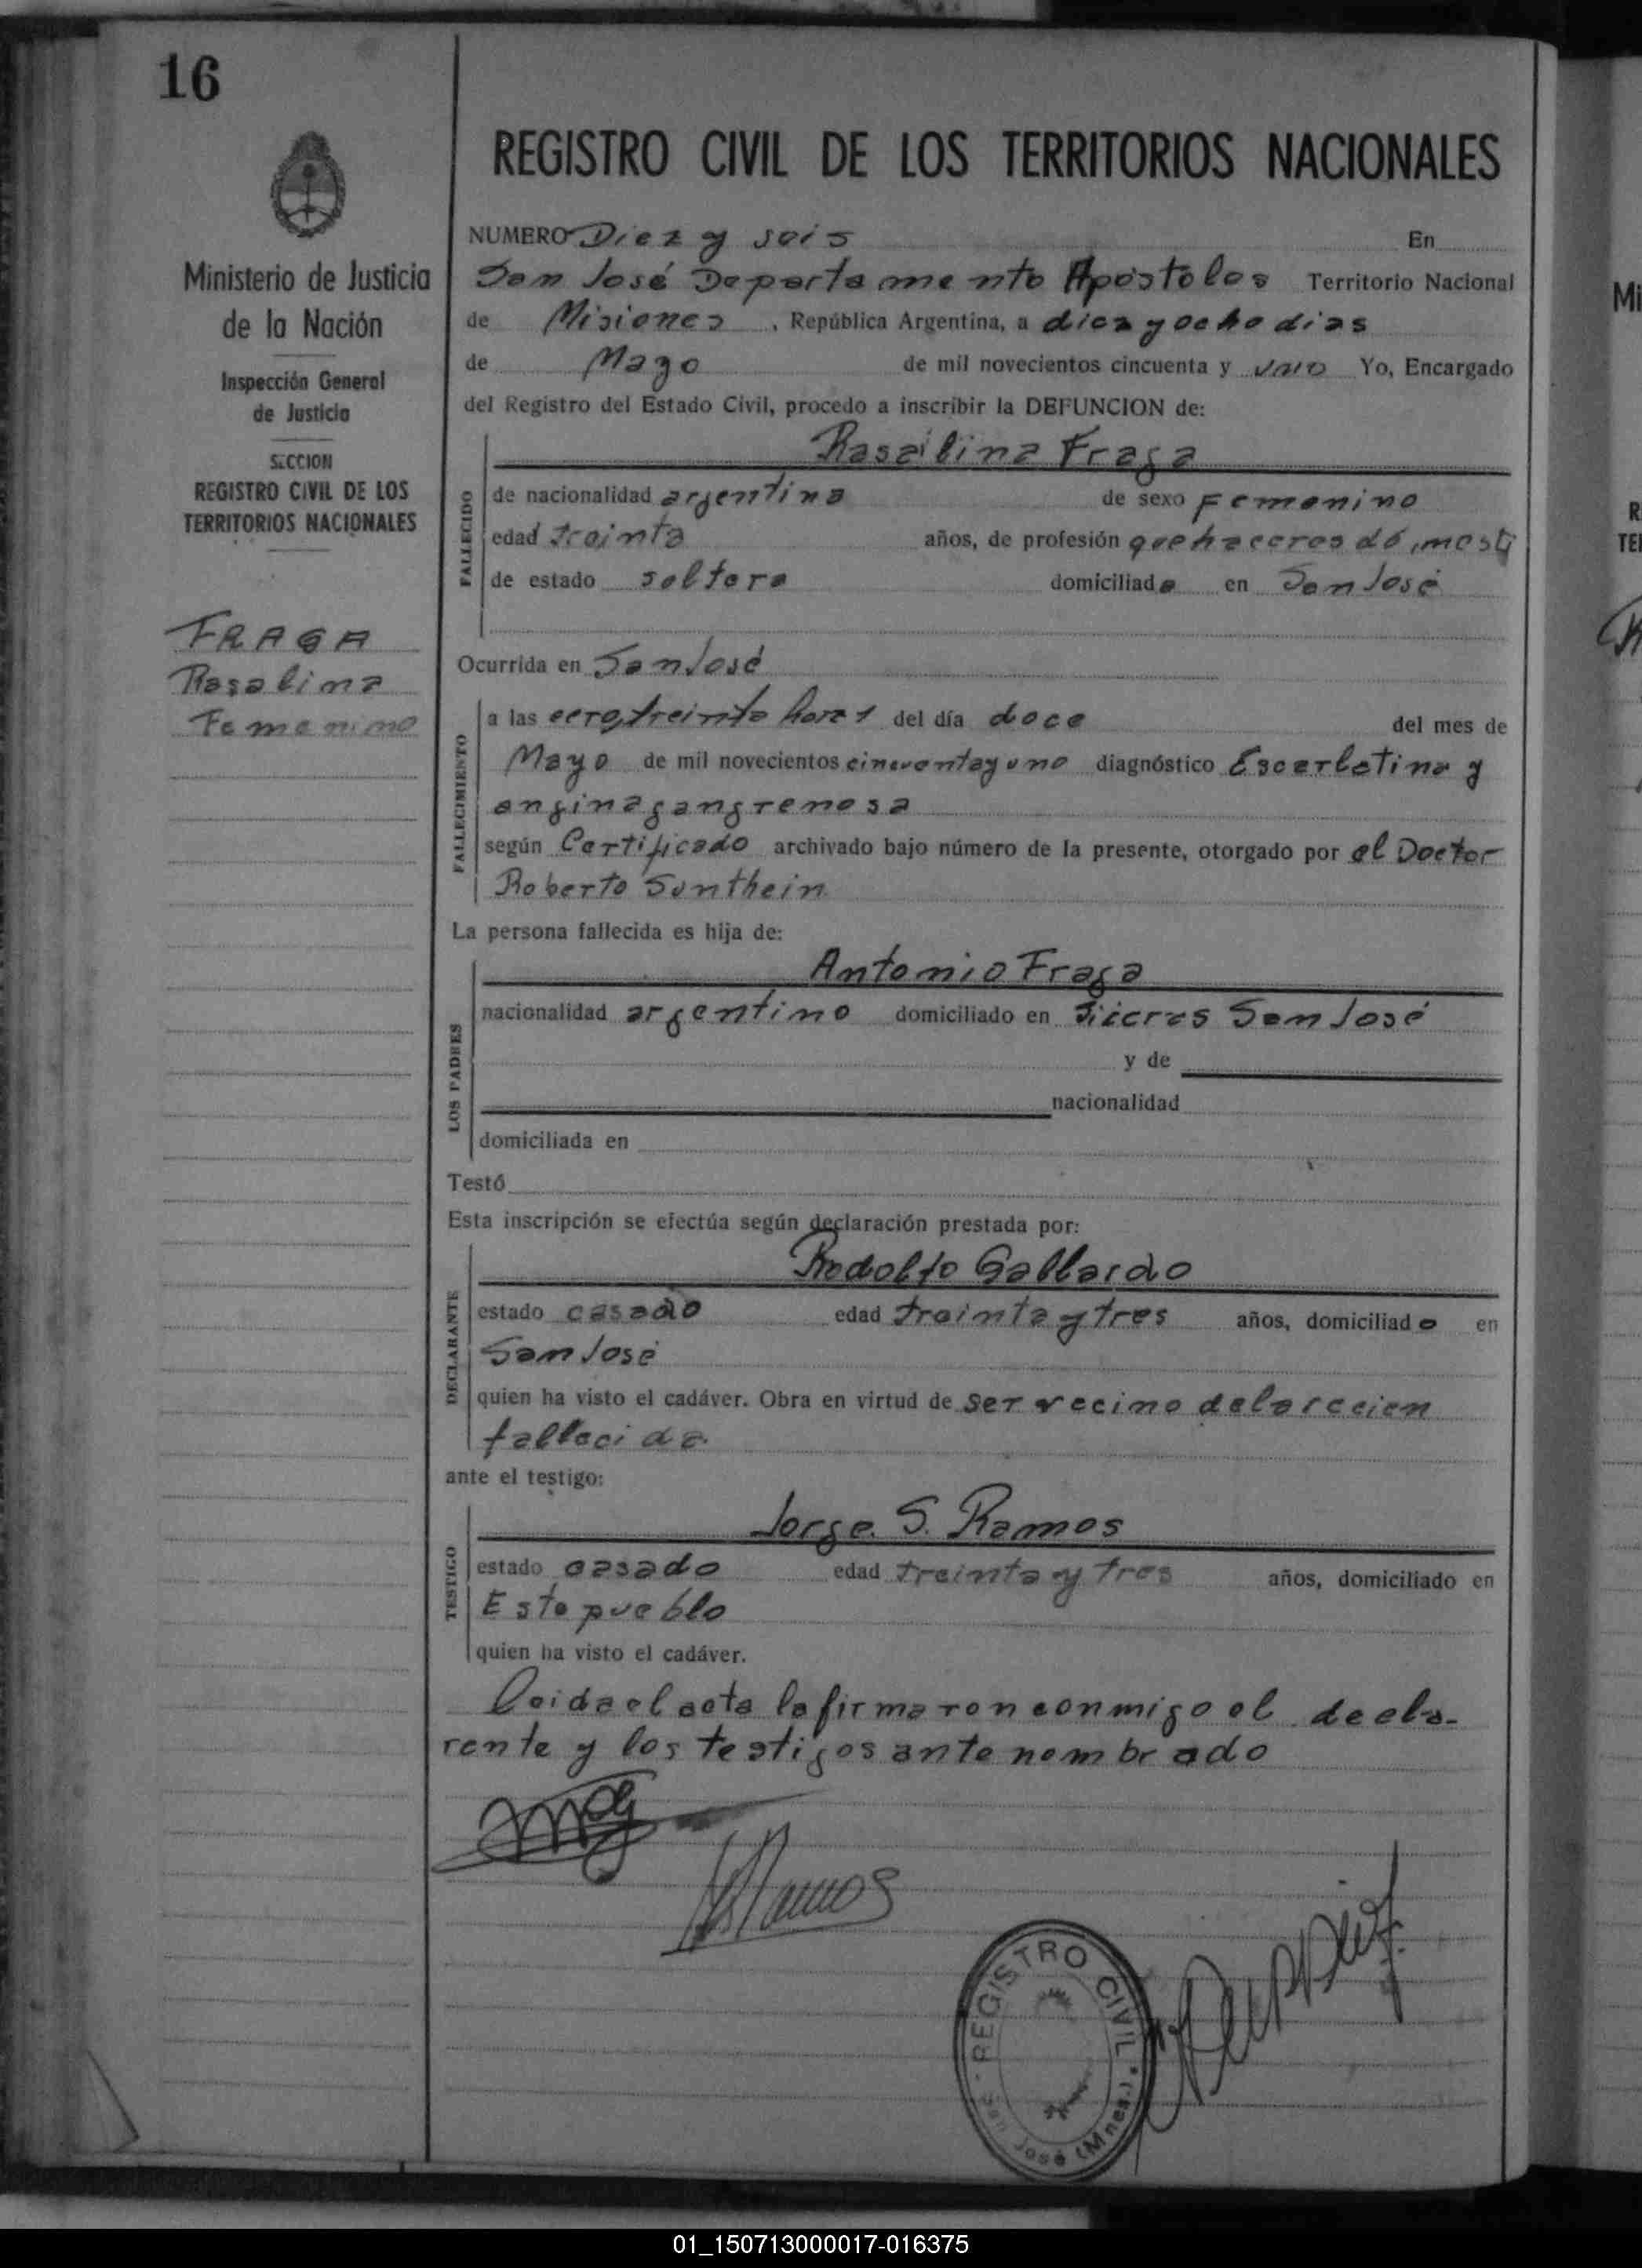 16
REGISTRO CIVIL DE LOS TERRITORIOS NACIONALES
Ministerio de Justicia
de la Nación
Inspección General
de Justicia
SECCION
REGISTRO CIVIL DE LOS
TERRITORIOS NACIONALES
FRAGA
Rasalina
Femenino
NUMERO Diez y seis En
San José Departamento Apóstoles Territorio Nacional
de Misiones, República Argentina, a diez y ocho dias
de Mayo de mil novecientos cincuenta y uno Yo, Encargado
del Registro del Estado Civil, procedo a inscribir la DEFUNCION de:
Rasalina Fraga
FALLECIDO
de nacionalidad argentina de sexo Femenino
edad treinta años, de profesión quehaceres
de estado soltera domiciliada en San José
Ocurrida en San José
FALLECIMIENTO
a las cero, treinta horas del día doce del mes de
Mayo de mil novecientos cincuenta y uno diagnóstico Escarlatina y
angina gangrenosa
según Certificado archivado bajo número de la presente, otorgado por el Doctor
Roberto Sonthein
La persona fallecida es hija de:
LOS PADRES
Antonio Fraga
nacionalidad argentino domiciliado en San José
y de
nacionalidad
domiciliada en
Testó
Esta inscripción se efectúa según declaración prestada por:
DECLARANTE
Rodolfo Gallardo
estado casado edad treinta y tres años, domiciliado en
San José
quien ha visto el cadáver. Obra en virtud de ser vecino de la recien
fallecida.
ante el testigo:
TESTIGO
Jorge. S. Ramos
estado casado edad treinta y tres años, domiciliado en
Este pueblo
quien ha visto el cadáver.
Leida el acta la firmaron conmigo el decla-
rante y los testigos ante nombrado
Ramos
REGISTRO CIVIL
San José (Mnes.)
01_150713000017-016375